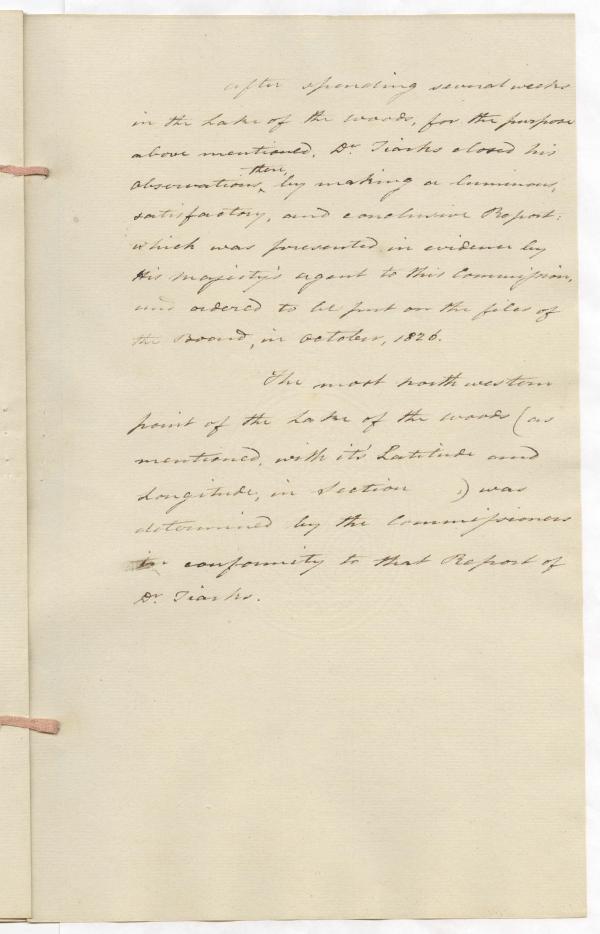 After spending several weeks
in the Lake of the woods, for the purpose
above mentioned, Dr. Tiarks closed his
Observations there, by making a luminous,
satisfactory, and conclusive Report:
which was presented in evidence by
His Majesty's agent to this Commission,
and ordered to be put on the files of
the Board, in October, 1826.
The most north western
point of the Lake of the woods (as
mentioned, with it's Latitude and
Longitude, in Section ,) was
determined by the Commissioners
in conformity to that Report of
Dr. Tiarks.